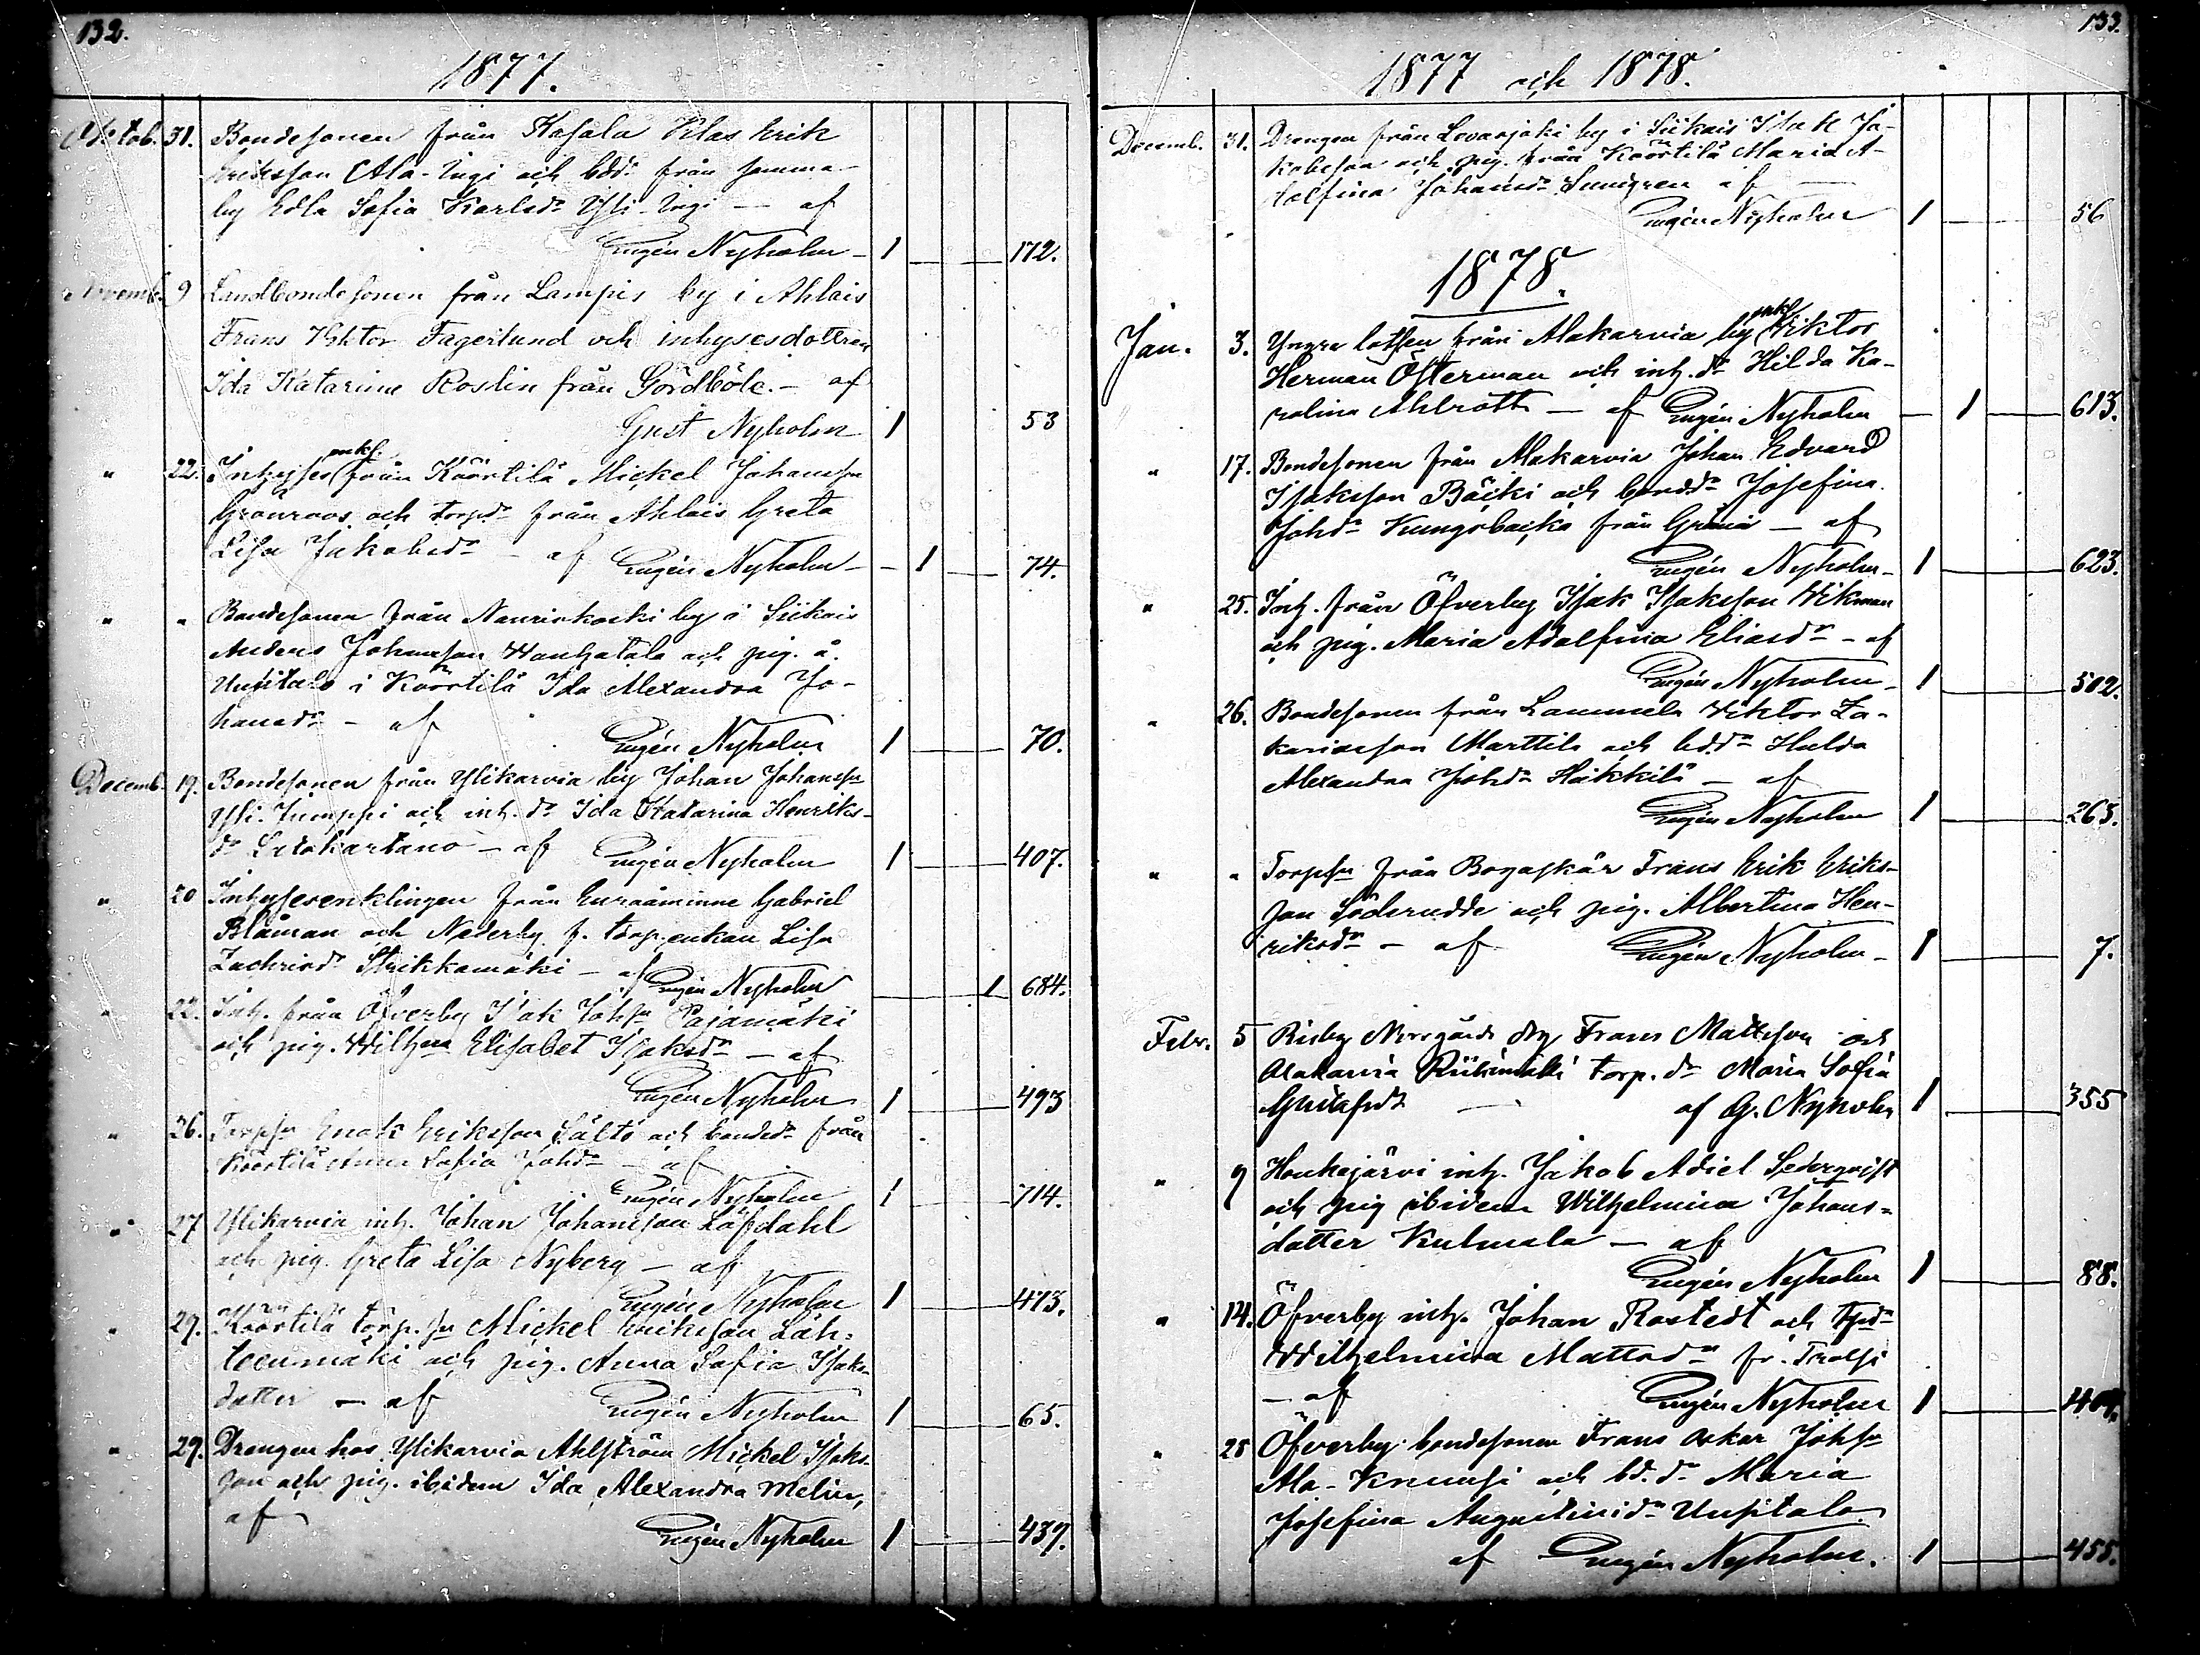 132.
1877.
Oktob. 31. Bondesonen från Kasala Klas Erik
Eriksson Ala-Ingi och bdr från samma
by Edla Sofia Karlsdr Yli-Ingi — af
Eugén Nyholm — 1 172.
Novemb. 9 Landbondesonen från Lampis by i Ahlais
Frans Viktor Fagerlund och inhysesdottren
Ida Katarina Roslin från Gördböle. — af
Gust Nyholm 1 53
" 22. Inhyses enkl. från Köörtilä Mickel Johansson
Grönroos och torpdr från Ahlais Greta
Lisa Jakobsdr — af Eugén Nyholm — 1 74.
" " Bondesonen från Leväsjoki by i Siikais
Anders Johansson och pig. å
Uusitalo i Köörtilä Ida Alexandra Jo-
hansdr — af Eugén Nyholm 1 70.
Decemb. 19. Bondesonen från Ylikarvia by Johan Johansson
Yli-Jumppi och inh. dr Ida Katarina Henriks-
dr Letokartano — af Eugén Nyholm 1 407.
" 20 Inhysesenklingen från Euraåminne Gabriel
Blåman och Nederby f. torp.enkan Lisa
Zachrisdr Strikkamäki — af Eugén Nyholm 1 684.
" 22. Inh. från Öfverby Isak Johsn Pajamäki
och pig. Wilhna Elisabet Isaksdr — af
Eugén Nyholm 1 493
" 26. Torpsn Enok Eriksson Sältö och bondedr från
Köörtilä Anna Sofia Johdr — af
Eugén Nyholm 1 714.
" 27 Ylikarvia inh. Johan Johansson Löfdahl
och pig. Greta Lisa Nyberg — af
Eugén Nyholm 1 413.
" 29. Köörtilä torp. sn Mickel Eriksson Läh-
teenmäki och pig. Anna Sofia Isaks-
dotter — af Eugén Nyholm 1 65.
" 29. Drengen hos Ylikarvia Ahlström Mickel Isaks-
son och pig. ibidem Ida Alexandra Melin,
af Eugén Nyholm 1 439.
133.
1877 och 1878.
Decemb. 31. Drengen från Leväsjoki by i Siikais Isak Ja-
kobsson och pig. från Köörtilä Maria A-
dolfina Johansdr Sundgren af —
Eugén Nyholm 1 56
1878.
Jan. 3. Yngre lotsen från Alakarvia by enkl Viktor
Herman Österman och inh. dr Hilda Ka-
rolina Ahlroth — af Eugén Nyholm — 1 613.
" 17. Bondesonen från Alakarvia Johan Edvard
Isaksson Bäcki och bonddr Josefina
Johdr Kungsbacka från — af
Eugén Nyholm — 1 623.
" 25. Inh. från Öfverby Isak Isaksson Wikman
och pig. Maria Adolfina Eliasdr — af
Eugén Nyholm — 1 502.
" 26. Bondesonen från Lammela Viktor Za-
kariasson Marttila och bd.dr Hulda
Alexandra Johdr Häkkilä — af
Eugén Nyholm 1 265.
" " Torpsn från Bogaskär Frans Erik Eriks-
son Söderudde och pig. Albertina Hen-
riksdr — af Eugén Nyholm — 1 7.
Febr. 5 Risby Norrgårds drg Frans Mattsson och
Alakarvia Riihimäki torp. dr Maria Sofia
— af G. Nyholm 1 355
" 9 Honkajärvi inh. Jakob Adiel Sederqvist
och pig ibidem Wilhelmina Johans-
dotter Kulmala — af
Eugén Nyholm 1 88.
" 14. Öfverby inh. Johan Rostedt och tpdr
Wilhelmina Mattsdr fr. Trolsi
— af Eugén Nyholm 1 404.
" 28 Öfverby bondesonen Frans Oskar Johsn
Ala-Knuussi och bd.dr Maria
Josefina Augustinidr Uusitalo
af Eugén Nyholm. 1 455.